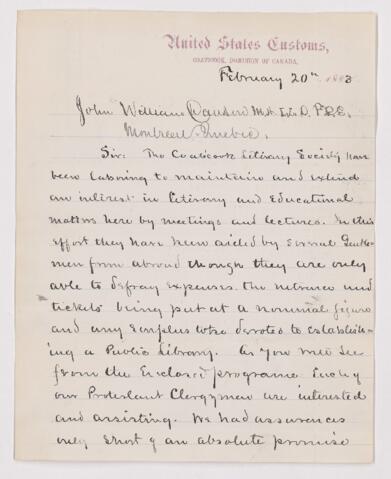 United States Customs,
COATICOOK, DOMINION OF CANADA,
February 20th 1883
John William Dawson M.A. L.L.D. F.R.S.
Montreal Quebec,
Sir: The Coaticook Literary Society have
been laboring to maintain and extend
an interest in Literary and Educational
matters here by meetings and lectures. In this
effort they have been aided by several Gentle-
men from abroad though they are only
able to defray expenses the entrance and
tickets being put at a nominal figure
and any surplus was devoted to establish-
ing a Public Library. As you will see
from the Enclosed programe Each of
our Protestant Clergymen are interested
and assisting. We had assurances
only short of an absolute promise